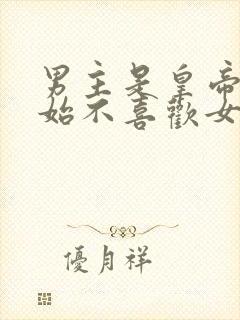 男主是皇帝
始不喜歡女
優月祥